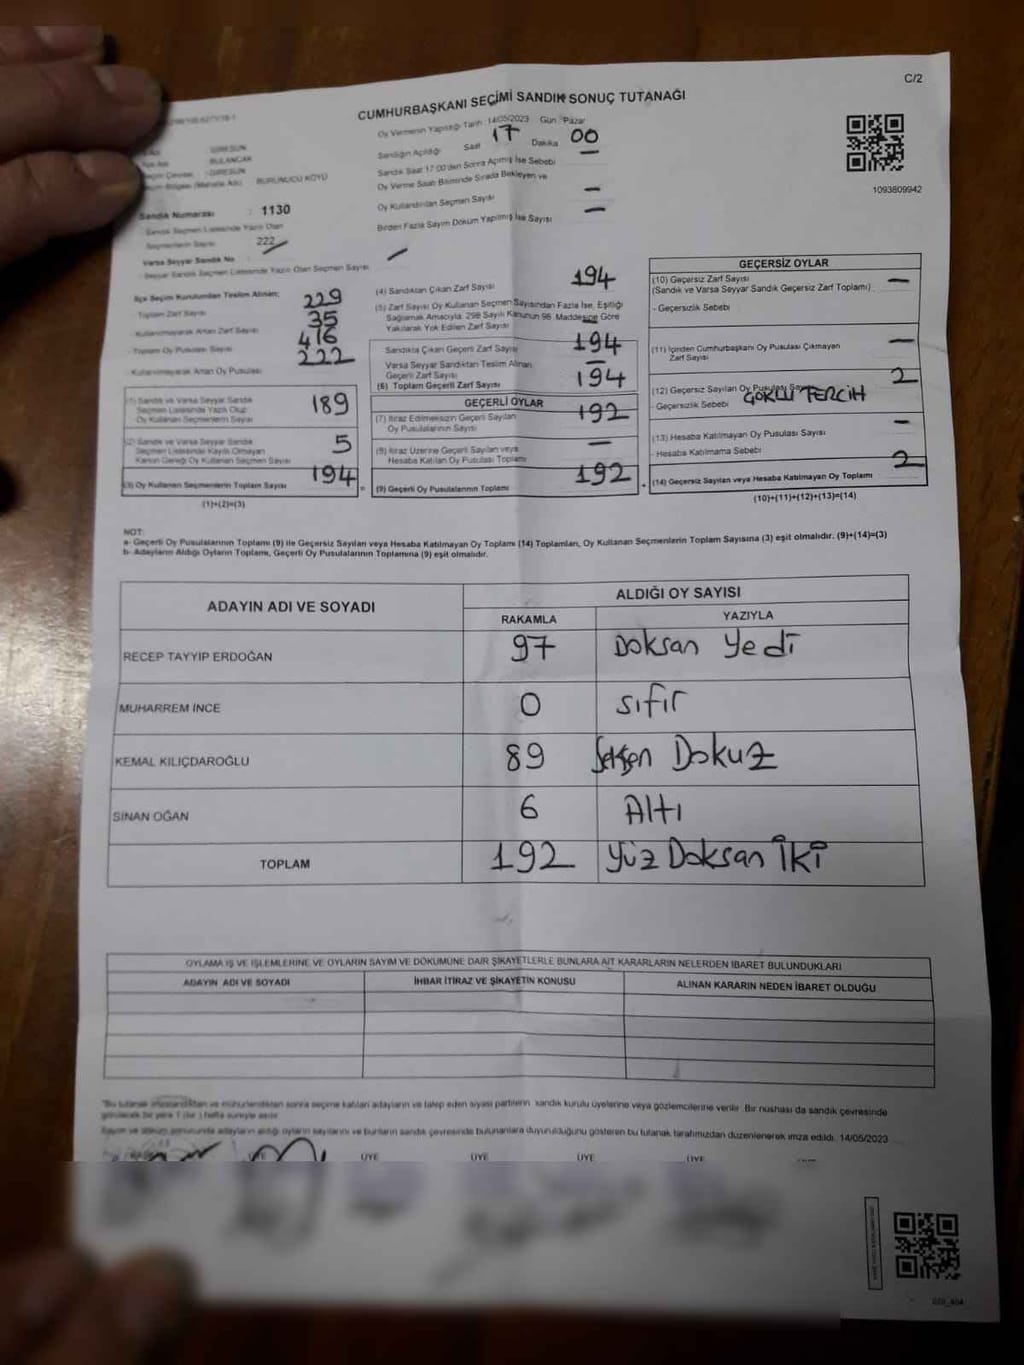 C/2
CUMHURBAŞKANI SEÇİMİ SANDIK SONUÇ TUTANAĞI
Oy Vermenin Yapıldığı Tarih :14/05/2023 Gün :Pazar
Sandığın Açıldığı Saat 17 Dakika 00
Sandık Saat 17:00'den Sonra Açılmış İse Sebebi —
Oy Verme Saati Bitiminde Sırada Bekleyen ve
Oy Kullandırılan Seçmen Sayısı —
Birden Fazla Sayım Döküm Yapılmış İse Sayısı —
1093809942
: GİRESUN
: BULANCAK
: GİRESUN
BURUNUCU KÖYÜ
Sandık Numarası : 1130
Sandık Seçmen Listesinde Yazılı Olan
Seçmenlerin Sayısı 222
Varsa Seyyar Sandık No
Seyyar Sandık Seçmen Listesinde Yazılı Olan Seçmen Sayısı
İlçe Seçim Kurulundan Teslim Alınan;
Toplam Zarf Sayısı 229
Kullanılmayarak Artan Zarf Sayısı 35
Toplam Oy Pusulası Sayısı 416
Kullanılmayarak Artan Oy Pusulası 222
(1) Sandık ve Varsa Seyyar Sandık
Seçmen Listesinde Yazılı Olup
Oy Kullanan Seçmenlerin Sayısı 189
(2) Sandık ve Varsa Seyyar Sandık
Seçmen Listesinde Kayıtlı Olmayan
Kanun Gereği Oy Kullanan Seçmen Sayısı 5
(3) Oy Kullanan Seçmenlerin Toplam Sayısı 194
(1)+(2)=(3)
(4) Sandıktan Çıkan Zarf Sayısı 194
(5) Zarf Sayısı Oy Kullanan Seçmen Sayısından Fazla İse, Eşitliği
Sağlamak Amacıyla; 298 Sayılı Kanunun 98. Maddesine Göre
Yakılarak Yok Edilen Zarf Sayısı —
Sandıkta Çıkan Geçerli Zarf Sayısı 194
Varsa Seyyar Sandıktan Teslim Alınan
Geçerli Zarf Sayısı —
(6) Toplam Geçerli Zarf Sayısı 194
GEÇERLİ OYLAR
(7) İtiraz Edilmeksizin Geçerli Sayılan
Oy Pusulalarının Sayısı 192
(8) İtiraz Üzerine Geçerli Sayılan veya
Hesaba Katılan Oy Pusulası Toplamı —
(9) Geçerli Oy Pusulalarının Toplamı 192
GEÇERSİZ OYLAR
(10) Geçersiz Zarf Sayısı
(Sandık ve Varsa Seyyar Sandık Geçersiz Zarf Toplamı) —
- Geçersizlik Sebebi
(11) İçinden Cumhurbaşkanı Oy Pusulası Çıkmayan
Zarf Sayısı —
(12) Geçersiz Sayılan Oy Pusulası Sayısı 2
- Geçersizlik Sebebi ÇOKLU TERCİH
(13) Hesaba Katılmayan Oy Pusulası Sayısı —
- Hesaba Katılmama Sebebi
(14) Geçersiz Sayılan veya Hesaba Katılmayan Oy Toplamı 2
(10)+(11)+(12)+(13)=(14)
NOT:
a- Geçerli Oy Pusulalarının Toplamı (9) ile Geçersiz Sayılan veya Hesaba Katılmayan Oy Toplamı (14) Toplamları, Oy Kullanan Seçmenlerin Toplam Sayısına (3) eşit olmalıdır. (9)+(14)=(3)
b- Adayların Aldığı Oyların Toplamı, Geçerli Oy Pusulalarının Toplamına (9) eşit olmalıdır.
ADAYIN ADI VE SOYADI ALDIĞI OY SAYISI
RAKAMLA YAZIYLA
RECEP TAYYİP ERDOĞAN 97 Doksan Yedi
MUHARREM İNCE 0 sıfır
KEMAL KILIÇDAROĞLU 89 Seksen Dokuz
SİNAN OĞAN 6 Altı
TOPLAM 192 Yüz Doksan İki
OYLAMA İŞ VE İŞLEMLERİNE VE OYLARIN SAYIM VE DÖKÜMÜNE DAİR ŞİKAYETLERLE BUNLARA AİT KARARLARIN NELERDEN İBARET BULUNDUKLARI
ADAYIN ADI VE SOYADI İHBAR İTİRAZ VE ŞİKAYETİN KONUSU ALINAN KARARIN NEDEN İBARET OLDUĞU
*Bu tutanak imzalandıktan ve mühürlendikten sonra seçime katılan adayların ve talep eden siyasi partilerin sandık kurulu üyelerine veya gözlemcilerine verilir. Bir nüshası da sandık çevresinde
görülecek bir yere 1 (bir) hafta süreyle asılır.
Sayım ve döküm sonucunda adayların aldığı oyların sayılarını ve bunların sandık çevresinde bulunanlara duyurulduğunu gösteren bu tutanak tarafımızdan düzenlenerek imza edildi. 14/05/2023
ÜYE ÜYE ÜYE ÜYE ÜYE